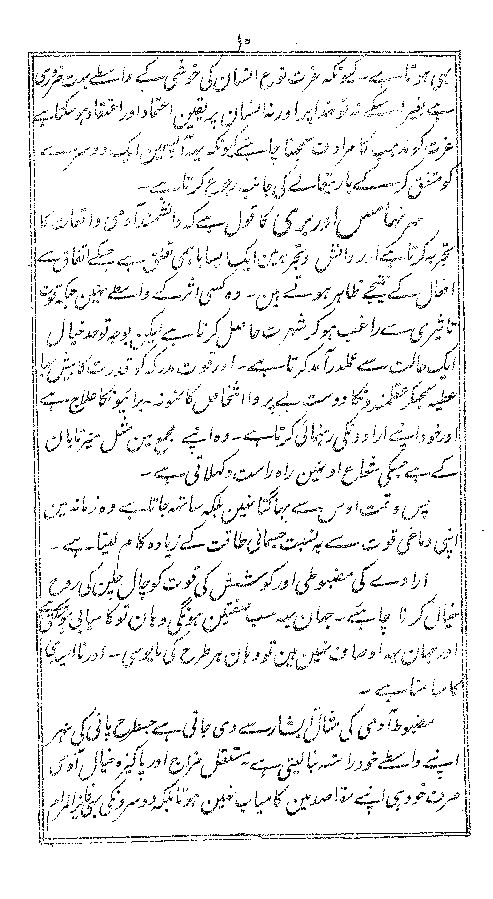 ۱۰
ہی ہوتا ہے ۔ کیونکہ عزت نوع انسان کی خوشی کے واسطے بہت ضروری
ہے بغیر اسکے نہ تو خدا پر اور نہ انسان پر یقین اعتماد اور اعتقاد ہو سکتا ہے
عزت کو مذہب کا مرادف سمجھنا چاہیے کیونکہ یہہ آدمیونمین ایک دوسرے سے
کو متفق کر کے باریتعالے کی جانب رجوع کرتا ہے ۔
سر تھامس اوربری کا قول ہے کہ دانشمند آدمی واقعات کا
تجربہ کرتا ہے اور دانش و تجربہ مین ایک ایسا باہمی تعلق ہے جسکے اتفاق سے
افعال کے نتیجے ظاہر ہوتے ہین ۔ وہ کسی اثر کے واسطے نہین جبکہ قوت
تاثیری سے راغب ہو کر شہرت حاصل کرتا ہے لیکن بوجہ توحد خیال
ایک حالت سے عملدرآمد کرتا ہے ۔ اور قوت مدرکہ کو قدرت کا بیش بہا
عطیہ سمجھکر عقلمندونکا دوست بے پروا اشخاص کا نمونہ ۔ برا ہونکا علاج ہے
اور خود اپنے ارادونکی رہنمائی کرتا ہے ۔ وہ اپنے مجمع مین مثل مہر تابان
کے ہے جسکی شعاع اونہین راہ راست دکھلاتی ہے ۔
پس وقت اوس سے بھاگتا نہین بلکہ ساتھہ جاتا ہے وہ زمانہ مین
اپنی دماغی قوت سے بہ نسبت جسمانی طاقت کے زیادہ کام لیتا ہے ۔
ارادے کی مضبوطی اور کوشش کی قوت کو چال چلن کی روح
خیال کرنا چاہیئے ۔ جہان یہہ سب صفتین ہونگی وہان تو کامیابی ہوگی
اور جہان یہہ اوصاف نہین ہین تو وہان ہر طرح کی مایوسی ۔ اور ناامیدی
کا سامنا ہے ۔
مضبوط آدمی کی مثال آبشار سے دی جاتی ہے جسطرح پانی کی نہر
اپنے واسطے خود راستہ بنا لیتی ہے ۔ مستقل مزاج اور پاکیزہ خیال آدمی
صرف خود ہی اپنے مقاصد مین کامیاب نہین ہوتا بلکہ دوسرونکو بھی